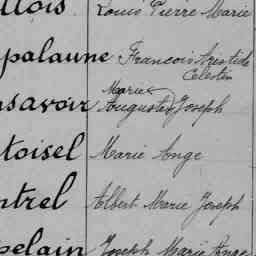 llois Louis Pierre Marie
palaune François Aristide
Célestin
Marie
nsavoir Auguste Joseph
toisel Marie Ange
ntrel Albert Marie Joseph
pelain Joseph Marie Ange